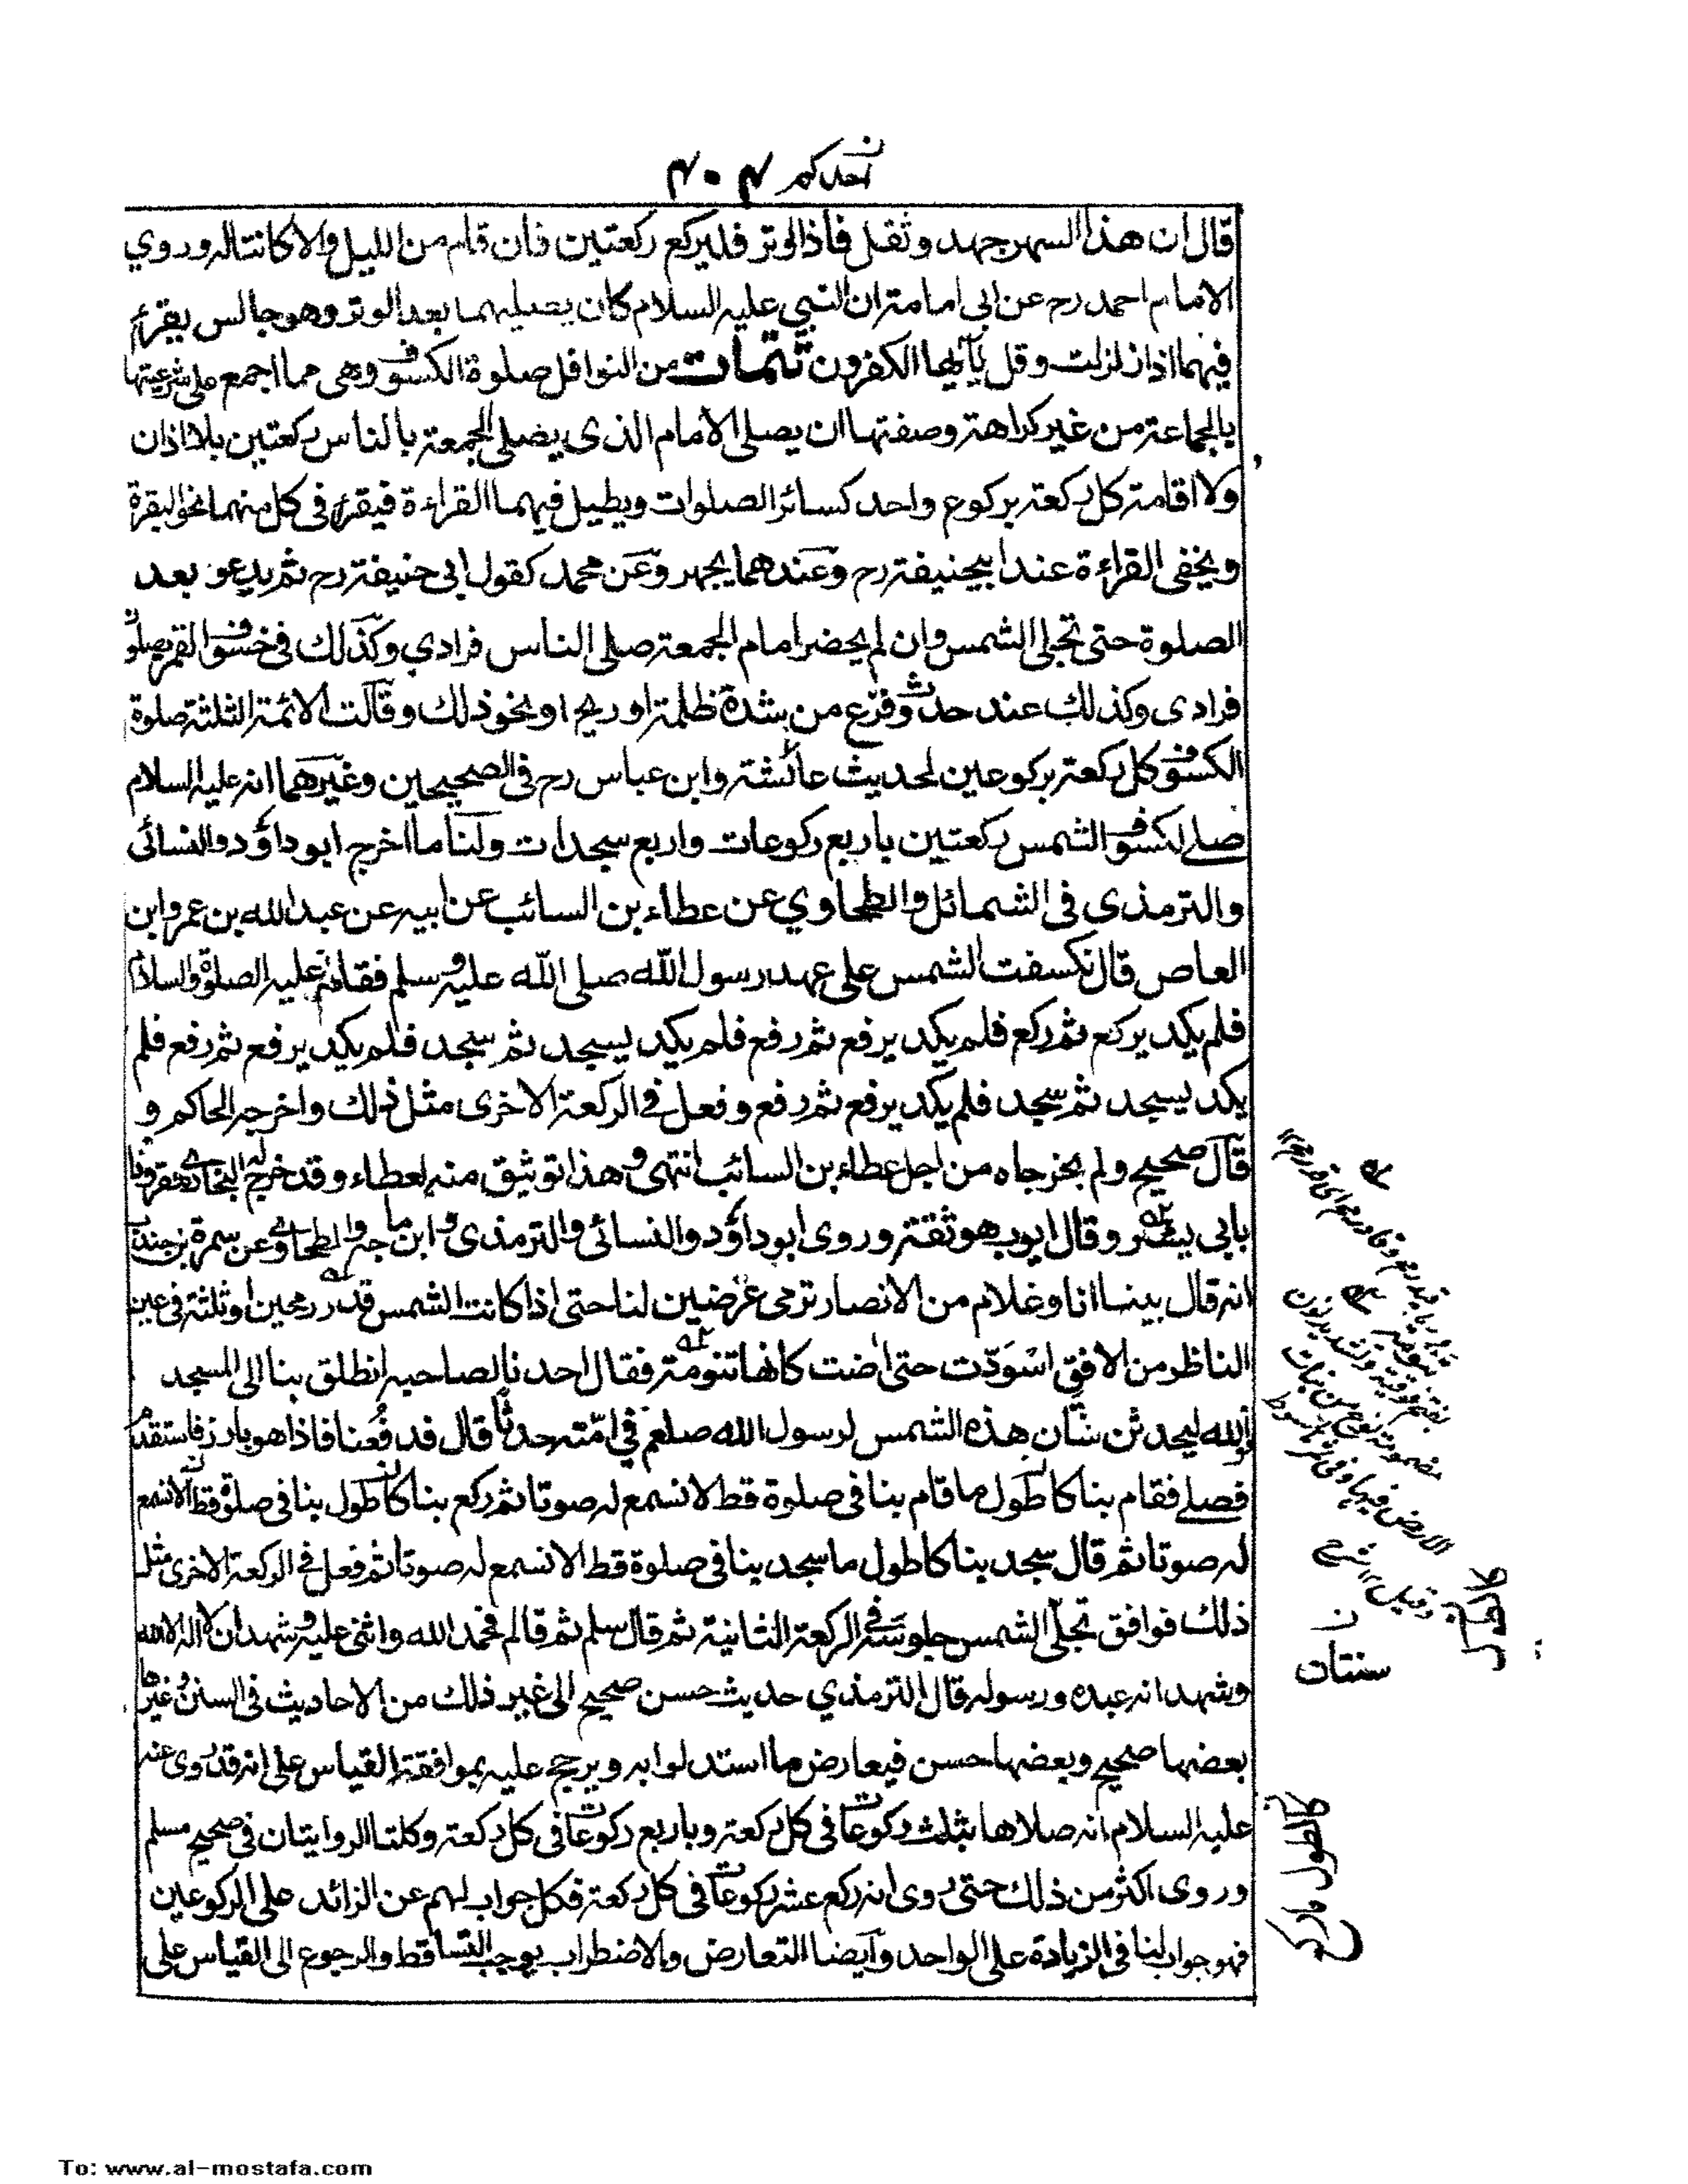 احدكم ۴۰۴
قال ان هذا السهر جهد وثقل فاذا اوتر فليركع ركعتين فان قام من الليل والا كانتا له وروي
الامام احمد رح عن ابى امامة ان النبي عليه السلام كان يصليهما بعد الوتر وهو جالس يقرء
فيهما اذا زلزلت وقل يآايها الكفرون تتمات من النوافل صلوة الكسوف وهى مما اجمع على شرعيتها
بالجماعة من غير كراهة وصفتها ان يصلى الامام الذى يصلى الجمعة بالناس ركعتين بلا اذان
ولا اقامة كل ركعة بركوع واحد كسائر الصلوات ويطيل فيهما القراءة فيقرء فى كل منهما نحو البقرة
ويخفى القراءة عند ابيحنيفة رح وعندهما يجهر وعن محمد كقول ابى حنيفة رح ثم يدعو بعد
الصلوة حتى تجلى الشمس وان لم يحضر امام الجمعة صلى الناس فرادي وكذلك فى خسوف القمر يصلون
فرادى وكذلك عند حدوث فزع من شدة ظلمة او ريح او نحو ذلك وقالت الائمة الثلثة صلوة
الكسوف كل ركعة بركوعين لحديث عائشة وابن عباس رح فى الصحيحين وغيرهما انه عليه السلام
صلى لكسوف الشمس ركعتين باربع ركوعات واربع سجدات ولنا ما اخرج ابو داؤد والنسائى
والترمذى فى الشمائل والطحاوي عن عطاء بن السائب عن ابيه عن عبد الله بن عمر وابن
العاص قال نكسفت الشمس على عهد رسول الله صلى الله عليه وسلم فقام عليه الصلوة والسلام
فلم يكد يركع ثم ركع فلم يكد يرفع ثم رفع فلم يكد يسجد ثم سجد فلم يكد يرفع ثم رفع فلم
يكد يسجد ثم سجد فلم يكد يرفع ثم رفع وفعل فى الركعة الاخرى مثل ذلك واخرجه الحاكم و
قال صحيح ولم يخرجاه من اجل عطاء بن السائب انتهى وهذا توثيق منه لعطاء وقد خرج له البخاري مقرونا
بابي بشر وقال ايوب هو ثقة وروى ابو داؤد والنسائى والترمذى وابن ماجه والطحاوي عن سمرة بن جندب
انه قال بينما انا وغلام من الانصار نرمى غرضين لنا حتى اذا كانت الشمس قدر رمحين او ثلثة فى عين
الناظر من الافق اسودت حتى اضت كانها تنومة فقال احدنا لصاحبه انطلق بنا الى المسجد
والله ليحدثن شان هذه الشمس لرسول الله صلعم فى امته حدثا قال فدفعنا فاذا هو بارز فاستقدم
فصلى فقام بنا كاطول ما قام بنا فى صلوة قط لا نسمع له صوتا ثم ركع بنا كاطول بنا فى صلوة قط لا نسمع
له صوتا ثم قال سجد بنا كاطول ما سجد بنا فى صلوة قط لا نسمع له صوتا ثم فعل فى الركعة الاخرى مثل
ذلك فوافق تجلى الشمس جلوسه فى الركعة الثانية ثم قال سلم ثم قالم فحمد الله واثنى عليه وشهد ان لا اله الا الله
وشهد انه عبده ورسوله قال الترمذي حديث حسن صحيح الى غير ذلك من الاحاديث فى السنن وغيرها
بعضها صحيح وبعضها حسن فيعارض ما استدلوا به ويرجح عليه بموافقة القياس على انه قد روى عنه
عليه السلام انه صلاها بثلث ركوعات فى كل ركعة وباربع ركوعات فى كل ركعة وكلتا الروايتان فى صحيح مسلم
وروى اكثر من ذلك حتى روى انه ركع عشر ركوعات فى كل ركعة فكل جواب لهم عن الزائد على الركوعين
فهو جواب لنا فى الزيادة على الواحد وايضا التعارض والاضطراب يوجب التساقط والرجوع الى القياس على
سنتان
كاطول ما ركع
To: www.al-mostafa.com